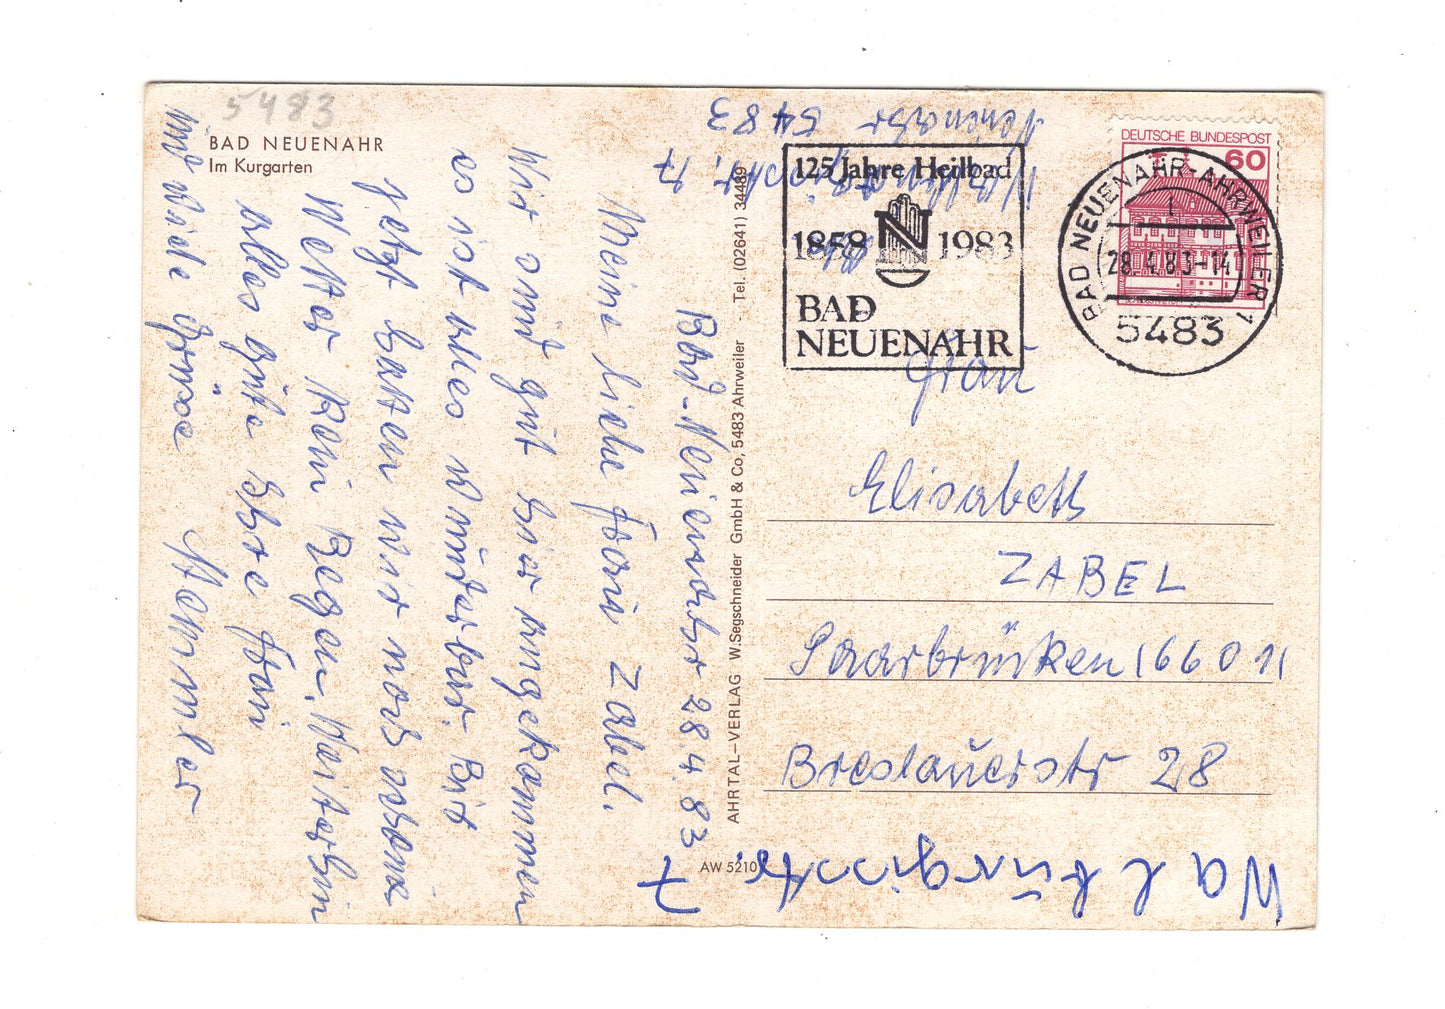 5483
BAD NEUENAHR
Im Kurgarten
Bad-Neuenahr 28.4.83
Meine liebe Frau Zabel.
Wir sind gut hier angekommen
es ist alles wunderbar. Bis
jetzt hatten wir noch schönes
Wetter kein Regen. Weiterhin
alles gute Ihre Frau
und viele Grüsse Stemmler
AHRTAL-VERLAG W. Segschneider GmbH & Co, 5483 Ahrweiler - Tel. (02641) 34489
AW 5210
125 Jahre Heilbad
1858 N 1983
BAD
NEUENAHR
DEUTSCHE BUNDESPOST
60
BAD NEUENAHR-AHRWEILER 1
28.4.83-14
5483
Frau
Elisabeth
ZABEL
Saarbrücken (6601)
Breslauerstr 28
Walburgisstr. 7
Neuenahr 5483
17